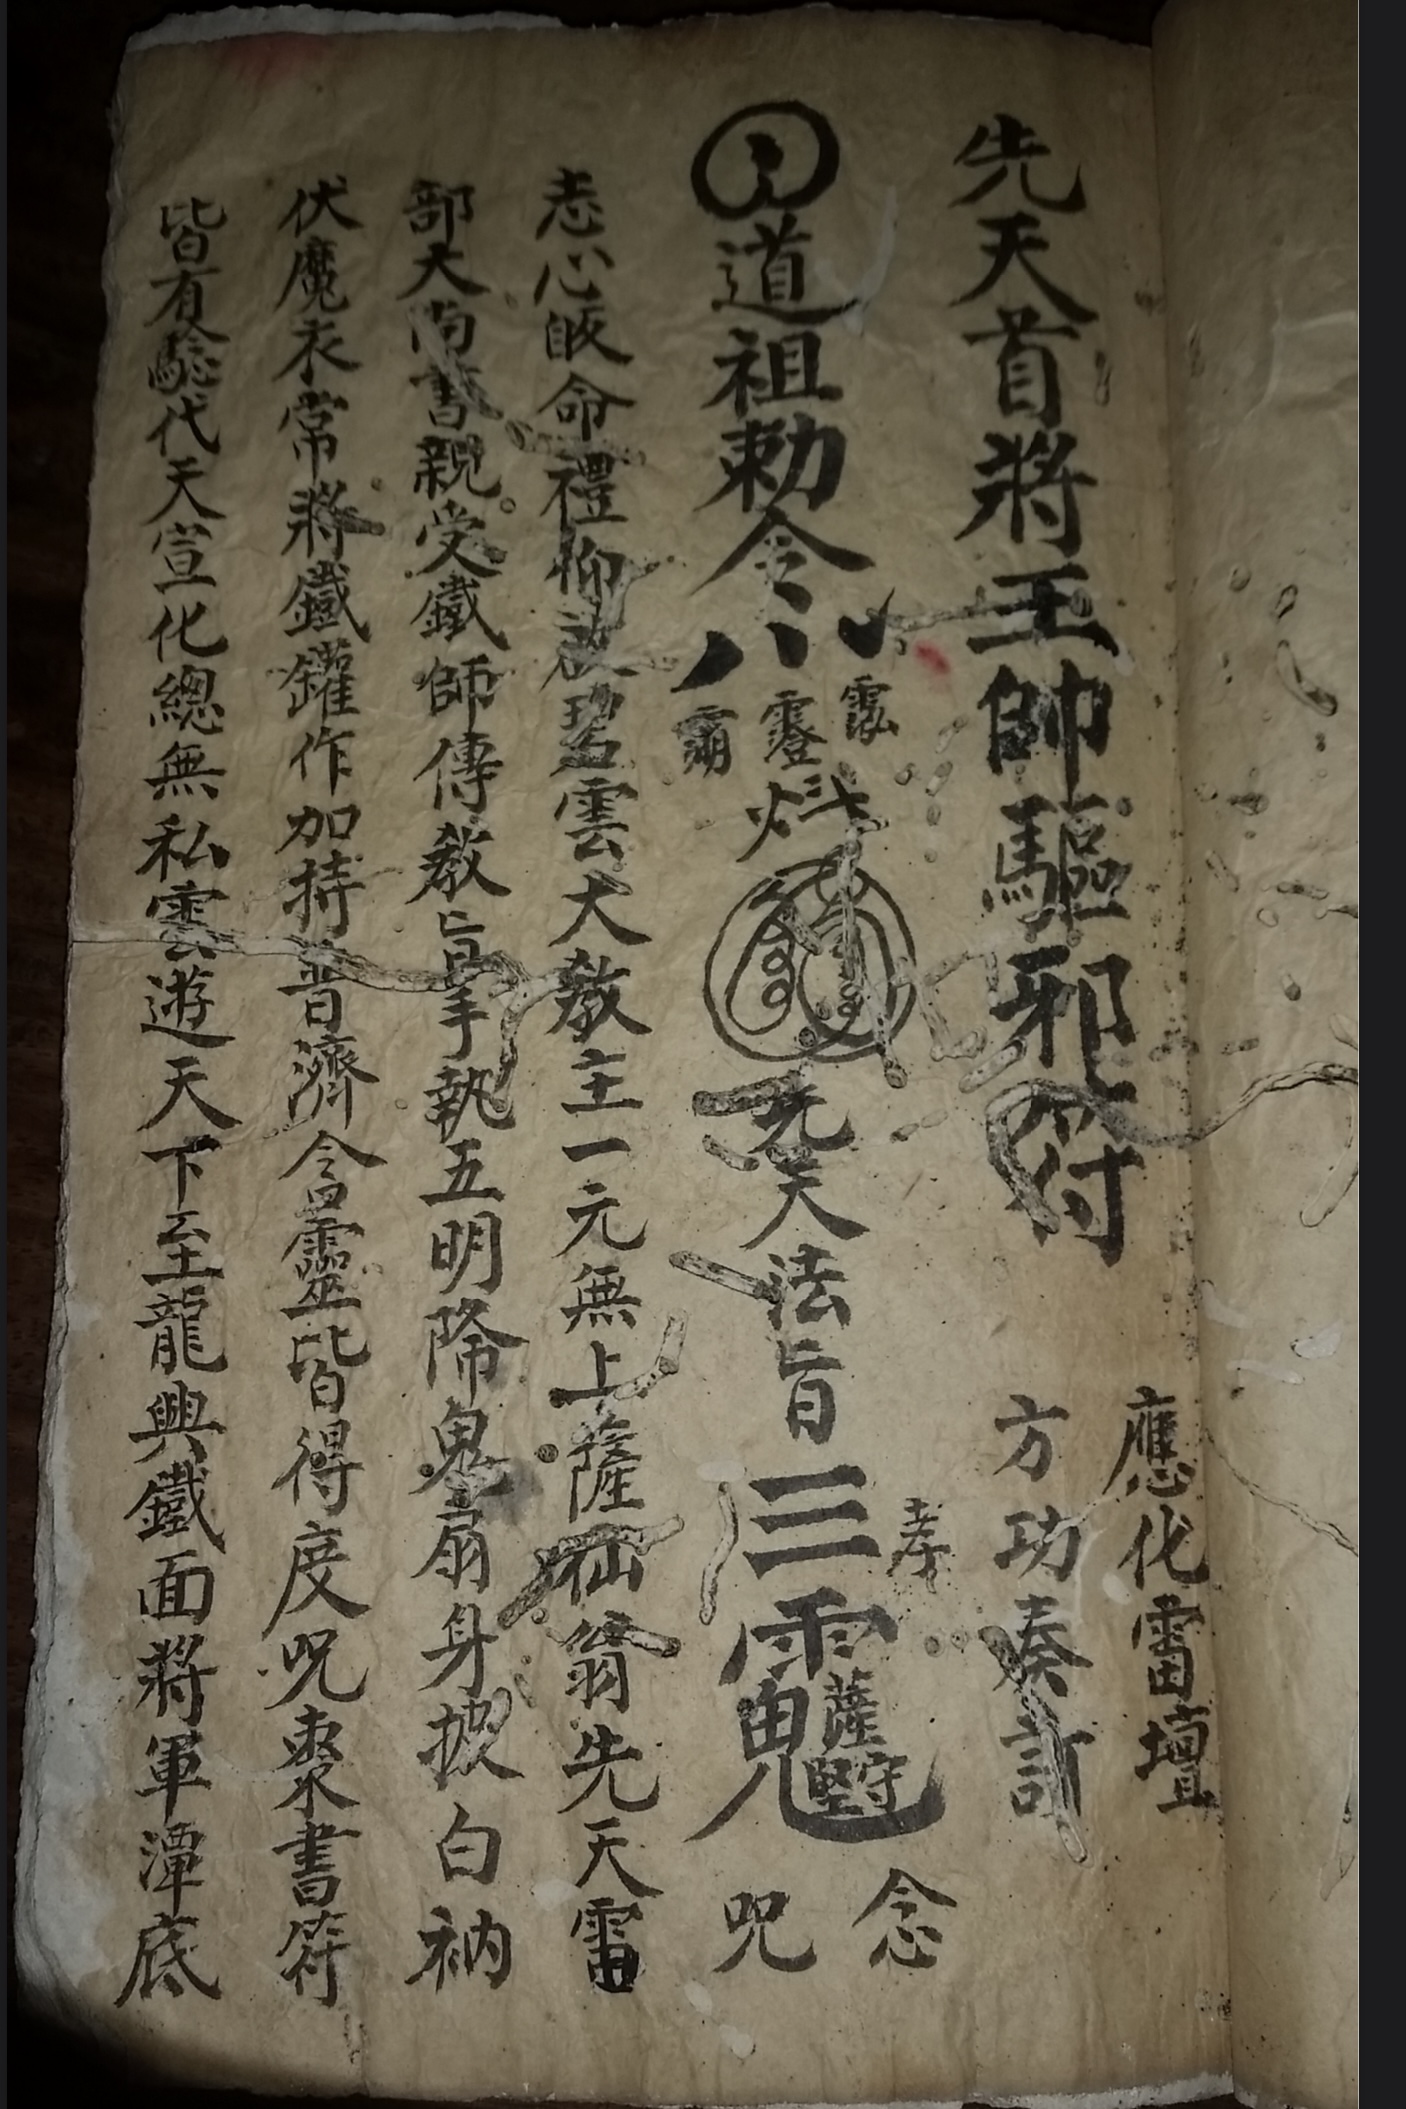 先天首將王帥驅邪符
應化雷壇
方功奏訂
道祖勅令
先天法旨三
薩堅守
念
咒
志心皈命禮仰啟碧雲大教主一元無上薩仙翁先天雷
部大尚書親受鐵師傳教旨手執五明降鬼扇身披白衲
伏魔衣常將鐵罐作加持普濟含靈皆得度咒棗書符
皆有驗代天宣化總無私雲遊天下至龍興鐵面將軍潭底